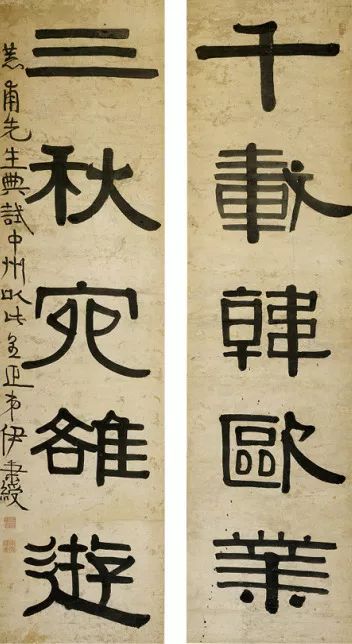 千載韓歐業
三秋宛雒遊
甫先生典試中州以此正弟伊秉綬